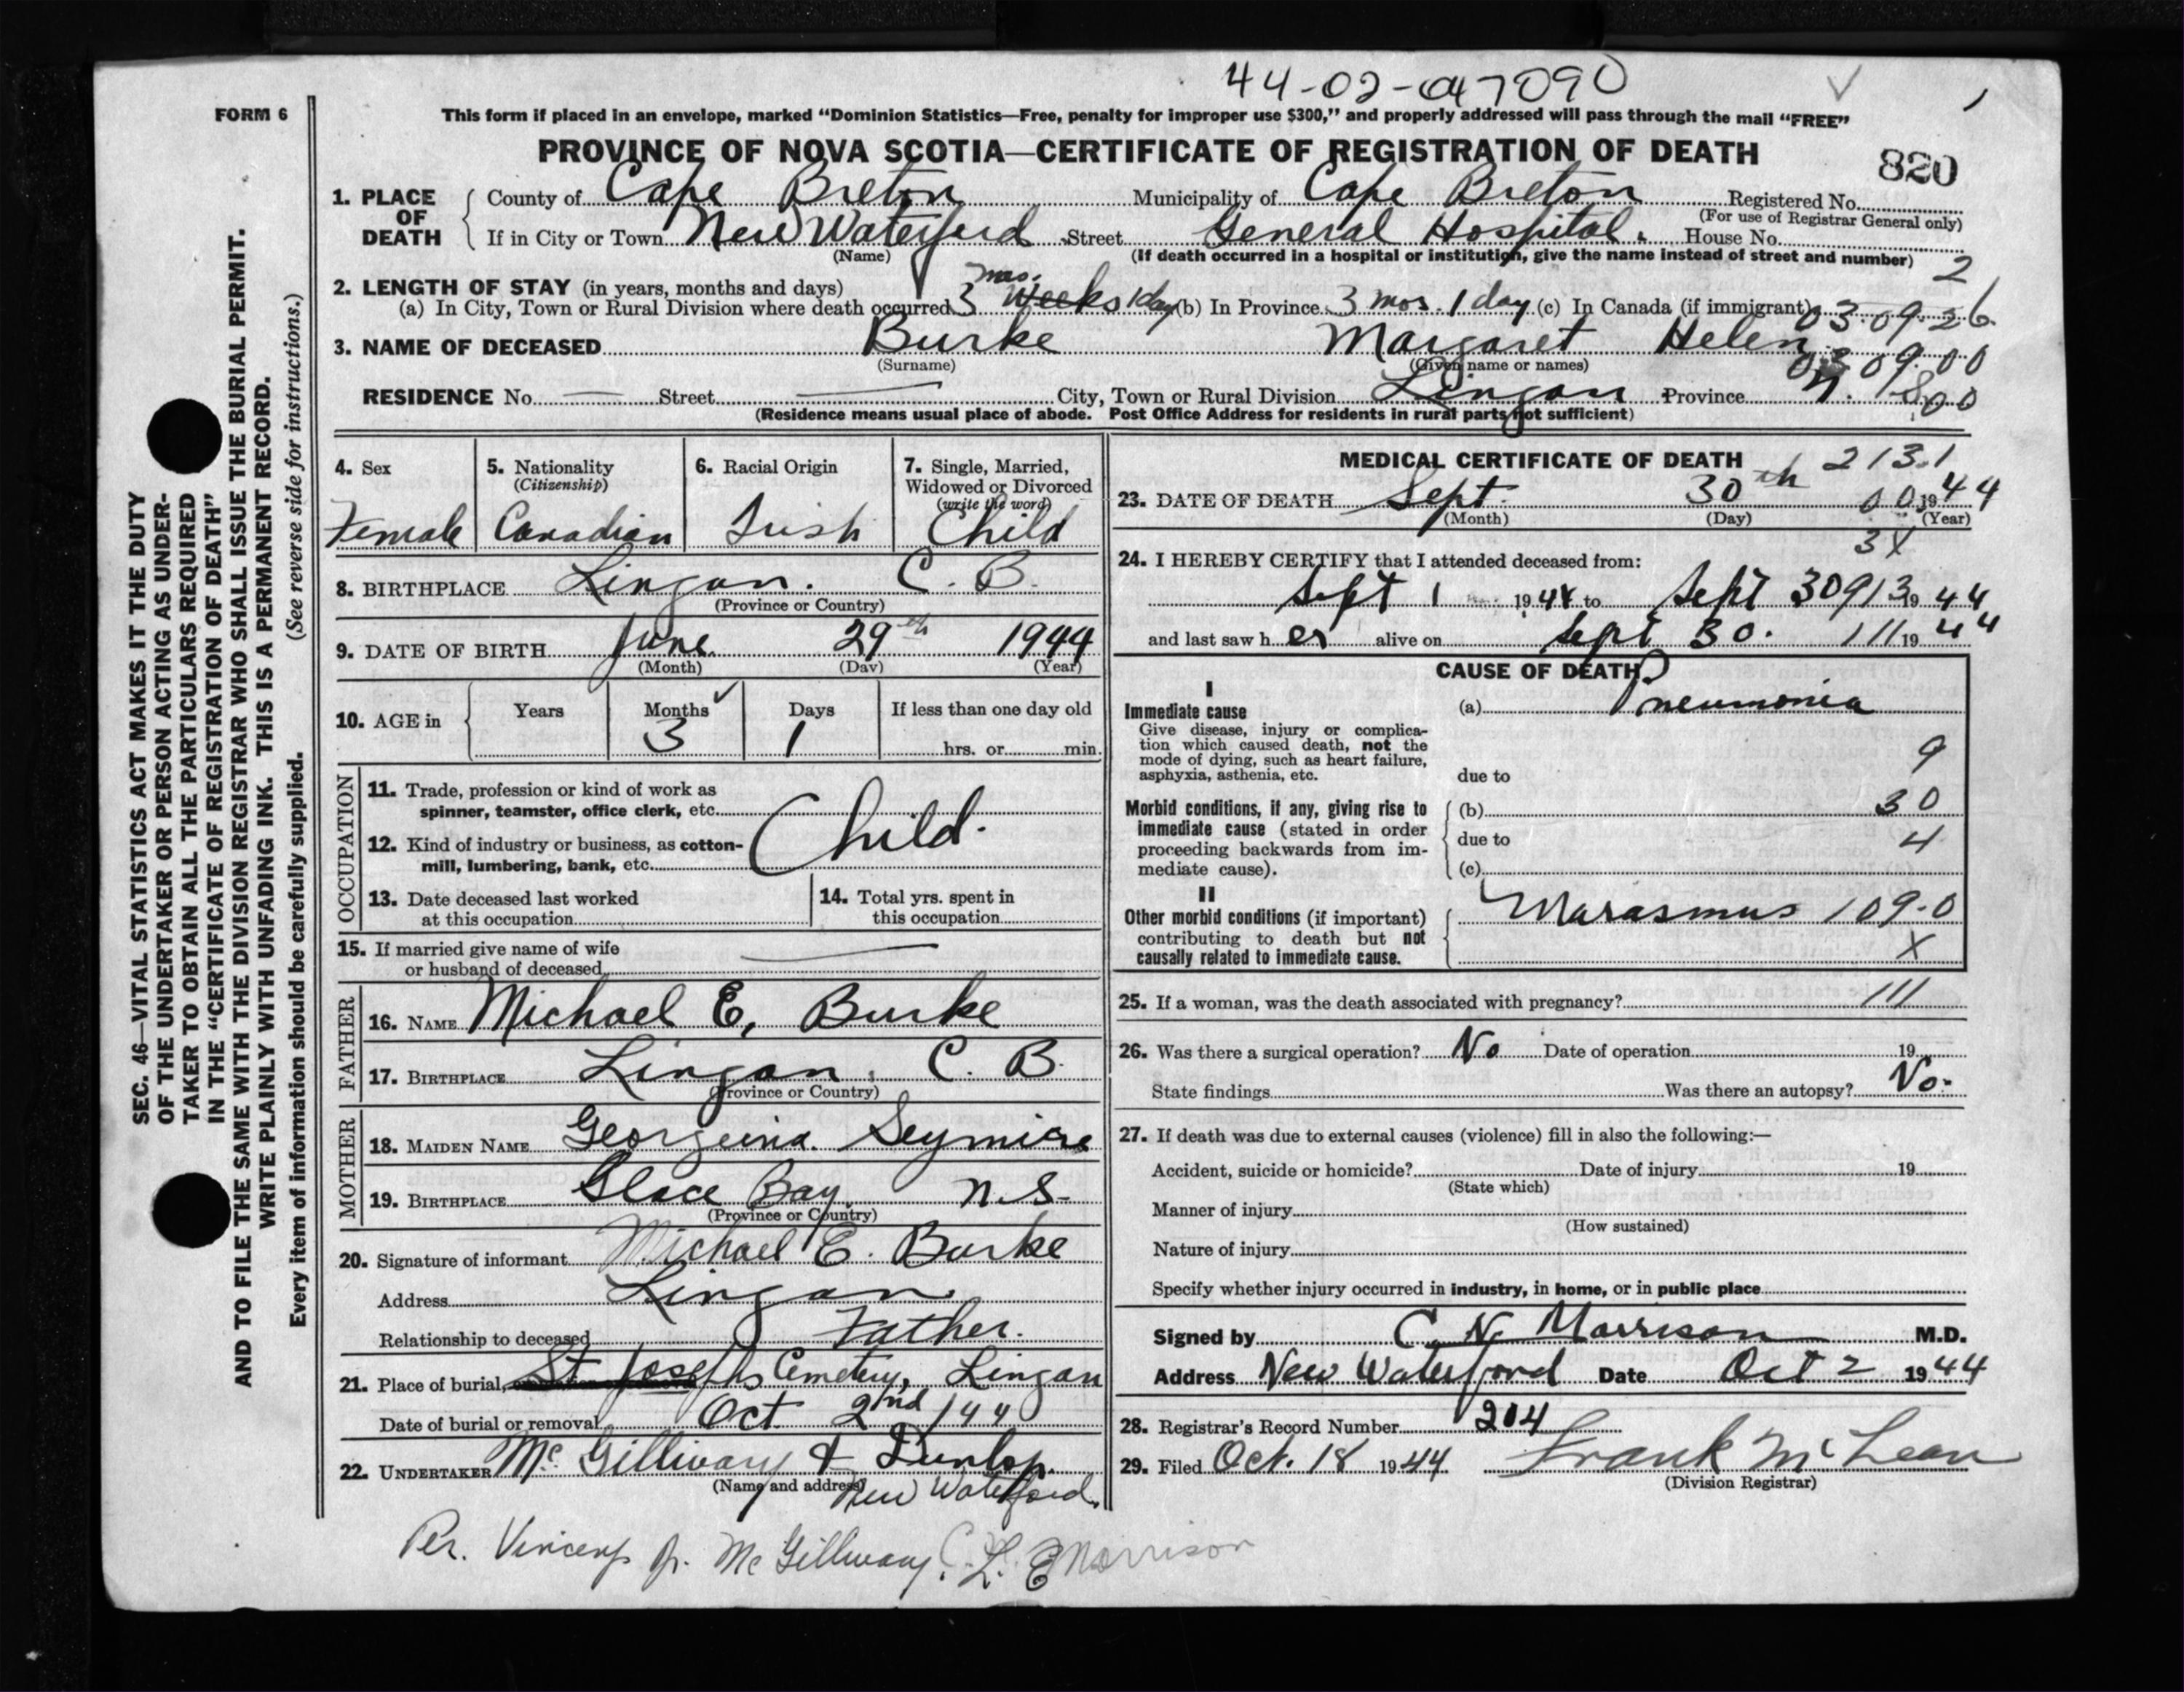 44-02-047090
FORM 6
This form if placed in an envelope, marked “Dominion Statistics—Free, penalty for improper use $300,” and properly addressed will pass through the mail “FREE”
PROVINCE OF NOVA SCOTIA—CERTIFICATE OF REGISTRATION OF DEATH
820
1. PLACE OF DEATH
County of Cape Breton Municipality of Cape Breton Registered No.
(For use of Registrar General only)
If in City or Town New Waterford Street General Hospital. House No.
(Name) (If death occurred in a hospital or institution, give the name instead of street and number)
2
2. LENGTH OF STAY (in years, months and days)
mos.
(a) In City, Town or Rural Division where death occurred 3 Weeks 1 day (b) In Province 3 mos. 1 day (c) In Canada (if immigrant)
03.09.26.
3. NAME OF DECEASED Burke Margaret Helen
(Surname) (Given name or names)
03 09.00
RESIDENCE No. — Street — City, Town or Rural Division Lingan Province N. S.
00
(Residence means usual place of abode. Post Office Address for residents in rural parts not sufficient)
4. Sex
Female
5. Nationality
(Citizenship)
Canadian
6. Racial Origin
Irish
7. Single, Married, Widowed or Divorced
(write the word)
Child
8. BIRTHPLACE Lingan. C. B.
(Province or Country)
9. DATE OF BIRTH June 29th 1944
(Month) (Day) (Year)
10. AGE in Years Months Days If less than one day old
3 1 hrs. or min.
OCCUPATION
11. Trade, profession or kind of work as spinner, teamster, office clerk, etc.
12. Kind of industry or business, as cotton-mill, lumbering, bank, etc.
Child.
13. Date deceased last worked at this occupation
14. Total yrs. spent in this occupation
15. If married give name of wife or husband of deceased —
FATHER
16. NAME Michael E. Burke
17. BIRTHPLACE Lingan, C. B.
(Province or Country)
MOTHER
18. MAIDEN NAME Georgeina Seymire
19. BIRTHPLACE Glace Bay. N.S.
(Province or Country)
20. Signature of informant Michael E. Burke
Address Lingan
Relationship to deceased Father.
21. Place of burial, St. Josephs Cemetery, Lingan
Date of burial or removal Oct 2nd /44
22. UNDERTAKER McGillivary & Dunlop.
(Name and address) New Waterford.
Per. Vincent J. McGillivary. C. L. E Morrison
MEDICAL CERTIFICATE OF DEATH
213.1
23. DATE OF DEATH Sept. 30th 00 1944
(Month) (Day) (Year)
3X
24. I HEREBY CERTIFY that I attended deceased from:
Sept 1 1944 to Sept 30 913 1944
and last saw her alive on Sept 30. 111 1944
CAUSE OF DEATH
I
Immediate cause
Give disease, injury or complication which caused death, not the mode of dying, such as heart failure, asphyxia, asthenia, etc.
(a) Pneumonia
9
due to
Morbid conditions, if any, giving rise to immediate cause (stated in order proceeding backwards from immediate cause).
(b) 30
due to 4
(c)
II
Other morbid conditions (if important) contributing to death but not causally related to immediate cause.
Marasmus 109-0
X
25. If a woman, was the death associated with pregnancy? 111
26. Was there a surgical operation? No Date of operation 19
State findings Was there an autopsy? No.
27. If death was due to external causes (violence) fill in also the following:—
Accident, suicide or homicide? Date of injury 19
(State which)
Manner of injury
(How sustained)
Nature of injury
Specify whether injury occurred in industry, in home, or in public place
Signed by C. N. Morrison M.D.
Address New Waterford Date Oct 2 1944
28. Registrar's Record Number 204
29. Filed Oct. 18 1944 Frank McLean
(Division Registrar)
SEC. 46—VITAL STATISTICS ACT MAKES IT THE DUTY
OF THE UNDERTAKER OR PERSON ACTING AS UNDER-
TAKER TO OBTAIN ALL THE PARTICULARS REQUIRED
IN THE “CERTIFICATE OF REGISTRATION OF DEATH”
AND TO FILE THE SAME WITH THE DIVISION REGISTRAR WHO SHALL ISSUE THE BURIAL PERMIT.
WRITE PLAINLY WITH UNFADING INK. THIS IS A PERMANENT RECORD.
Every item of information should be carefully supplied. (See reverse side for instructions.)